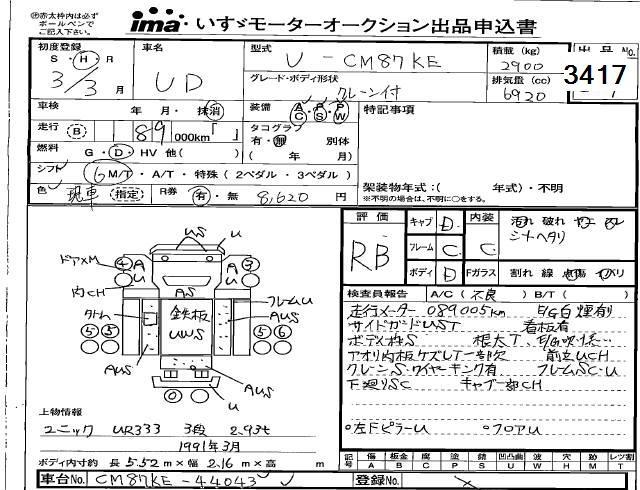 ㊟赤太枠内は必ず
ボールペンで
ご記入下さい。
ima いすゞモーターオークション出品申込書
初度登録
S・H・R
3/3月
車名
UD
型式
U-CM87KE
グレード・ボディ形状
クレーン付
積載 (kg)
2900
排気量 (cc)
6920
出品No.
3417
車検 年 月・抹消
装備 AC PS PW
特記事項
走行 B 89 000km「 」
タコグラフ
有・無 別体
( 年 月)
燃料 G・D・HV 他( )
シフト 6 M/T・A/T・特殊 (2ペダル・3ペダル)
色 現車 (指定) R券 有・無 8,620 円
架装物年式:( 年式)・不明
※不明の場合は、不明に○をする。
評価
RB
キャブ D
フレーム C
ボディ D
内装
C
Fガラス
汚れ 破れ ヤニ
シートヘタリ
割れ 線 点傷
検査員報告 A/C(不良) B/T( )
走行メーター 089005km E/G白煙有り
サイドガードUST 看板有
ボディ内S 根太T
アオリ内板ケズレT一部欠 前立UCH
クレーンS・ワイヤーキンク有 フレームSC・U
下廻りSC キャブ一部CH
○左FピラーU ○フロアU
US
U
ドアXM
4
A
U
A
U
3
内CH
AS
フレームU
鉄板
UWS
AUS
5 5
5 6
AUS
AUS
0
U
上物情報
ユニック UR333 3段 2.93t
1991年3月
ボディ内寸約 長 5.52 m×幅 2.16 m×高 m
記号 傷A 板金B 腐C 塗P 錆S 凹凸曲U 波W 穴H ホツM レツT
車台No. CM87KE-44043
登録No.